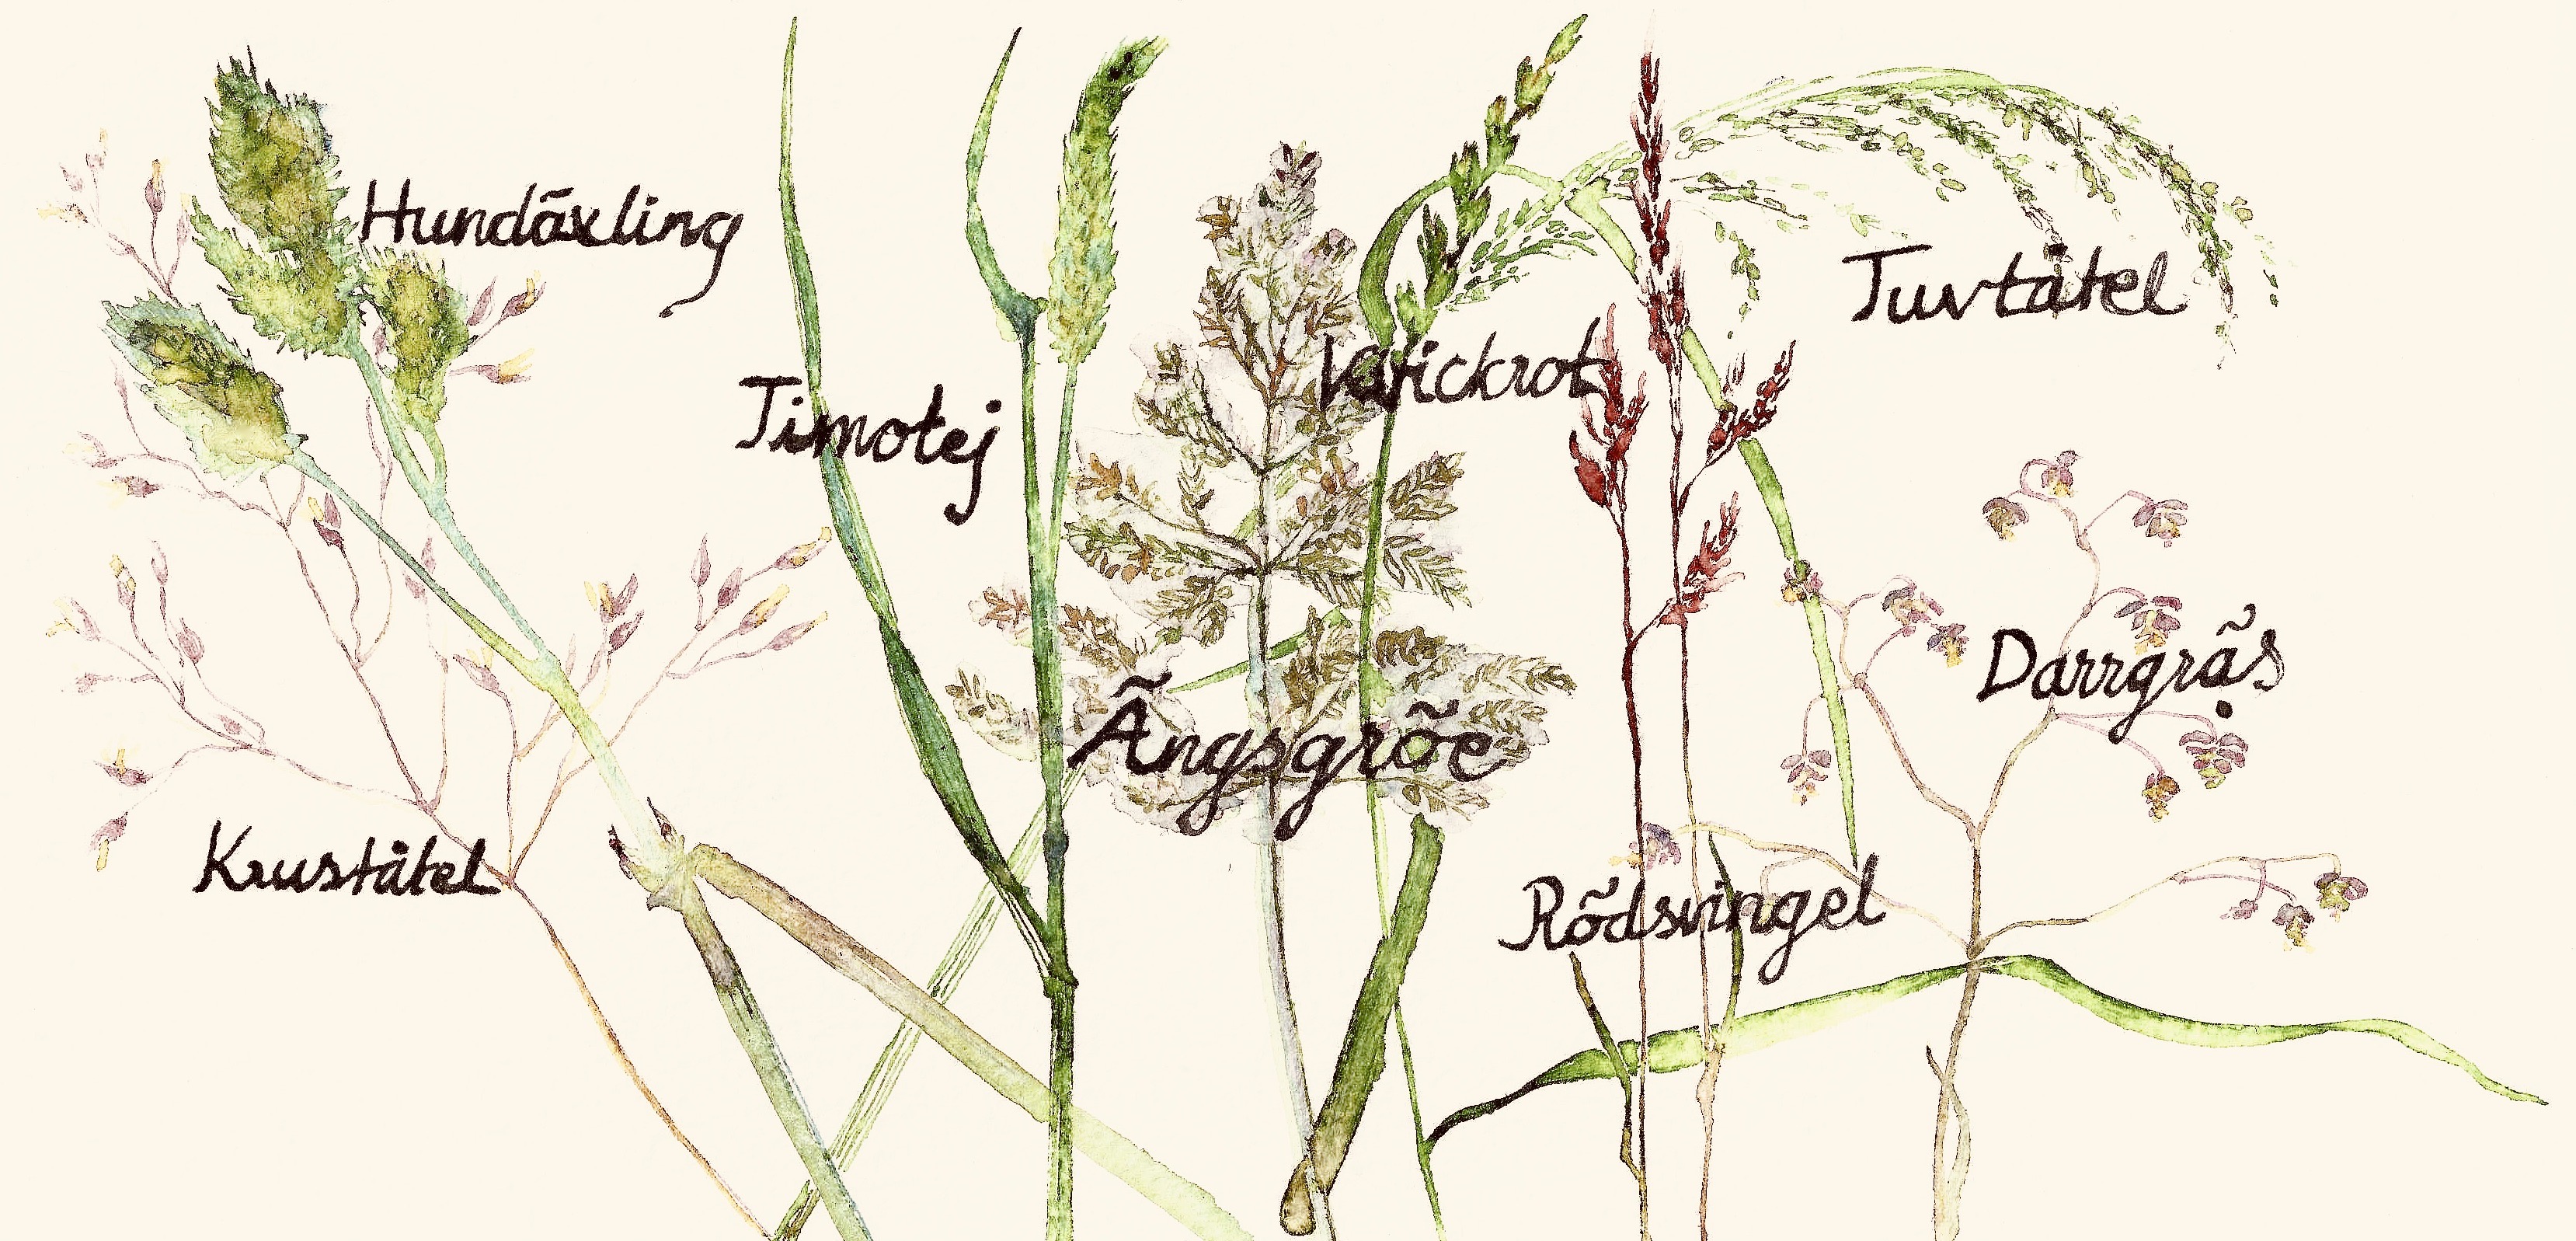 Hundäxling
Tuvtåtel
Timotej
Kvickrot
Ängsgröe
Darrgräs
Kruståtel
Rödsvingel